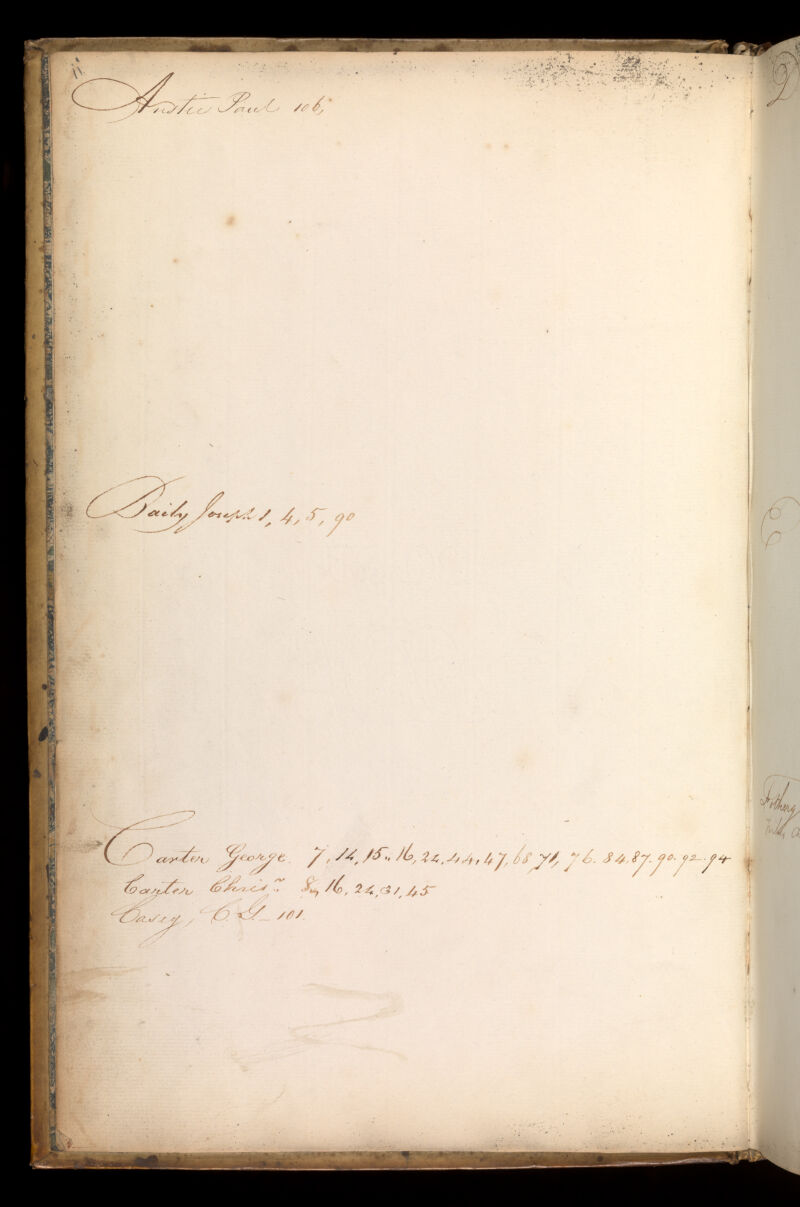 Anstie Paul 106,
Baily Joseph 1, 4, 5, 90
Carter George. 7, 14, 15,, 16, 24, 44, 47, 68, 71, 76. 84. 87. 90. 92. 94
Carter Chrisr. 8,, 16, 24, 31, 45
Casey, C. G. - 101.